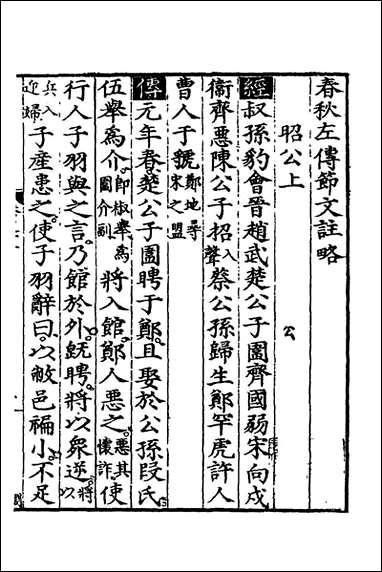 春秋左傳節文註略
昭公上
公
經叔孫豹會晉趙武楚公子圍齊國弱宋向戌
衞齊惡陳公子招入聲蔡公孫歸生鄭罕虎許人
曹人于虢鄭地尋宋之盟
傳元年春楚公子圍聘于鄭且娶於公孫段氏
伍舉爲介即椒舉爲圍介副將入館鄭人惡之惡其懷詐使
行人子羽與之言乃館於外旣聘將以衆逆將以
兵入迎歸子產患之使子羽辭曰以敝邑褊小不足